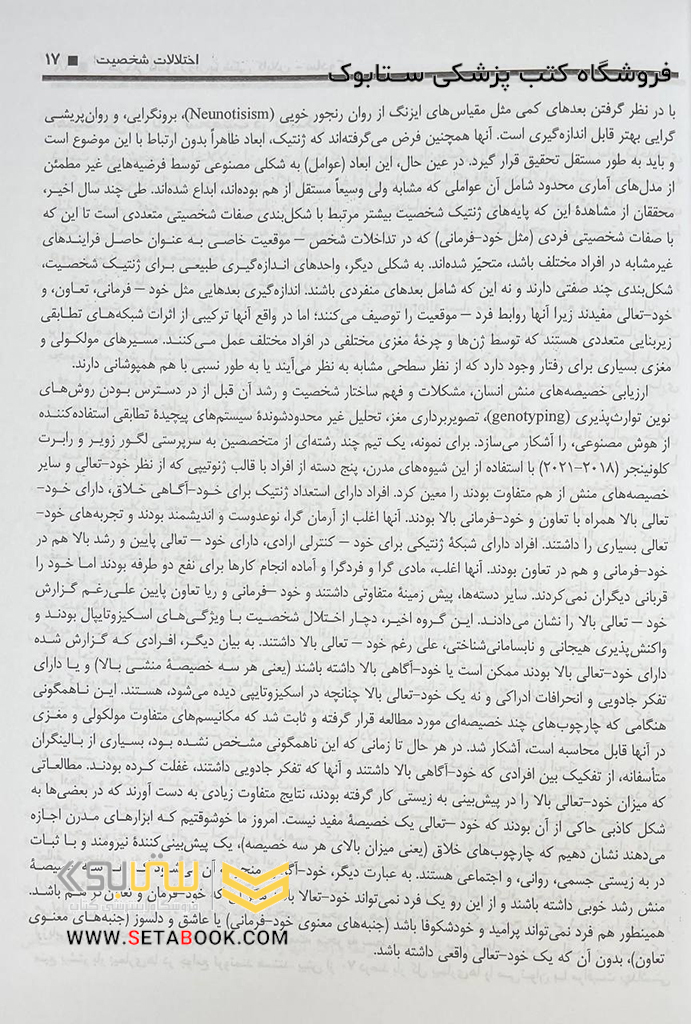 اختلالات شخصیت ■ ۱۷
فروشگاه کتب پزشکی ستابوک
با در نظر گرفتن بعدهای کمی مثل مقیاس‌های ایزنگ از روان رنجور خویی (Neunotisism)، برونگرایی، و روان‌پریشی
گرایی بهتر قابل اندازه‌گیری است. آنها همچنین فرض می‌گرفته‌اند که ژنتیک، ابعاد ظاهراً بدون ارتباط با این موضوع است
و باید به طور مستقل تحقیق قرار گیرد. در عین حال، این ابعاد (عوامل) به شکلی مصنوعی توسط فرضیه‌هایی غیر مطمئن
از مدل‌های آماری محدود شامل آن عواملی که مشابه ولی وسیعاً مستقل از هم بوده‌اند، ابداع شده‌اند. طی چند سال اخیر،
محققان از مشاهدهٔ این که پایه‌های ژنتیک شخصیت بیشتر مرتبط با شکل‌بندی صفات شخصیتی متعددی است تا این که
با صفات شخصیتی فردی (مثل خود-فرمانی) که در تداخلات شخص – موقعیت خاصی به عنوان حاصل فرایندهای
غیرمشابه در افراد مختلف باشد، متحیّر شده‌اند. به شکلی دیگر، واحدهای اندازه‌گیری طبیعی برای ژنتیک شخصیت،
شکل‌بندی چند صفتی دارند و نه این که شامل بعدهای منفردی باشند. اندازه‌گیری بعدهایی مثل خود – فرمانی، تعاون، و
خود-تعالی مفیدند زیرا آنها روابط فرد – موقعیت را توصیف می‌کنند؛ اما در واقع آنها ترکیبی از اثرات شبکه‌های تطابقی
زیربنایی متعددی هستند که توسط ژن‌ها و چرخهٔ مغزی مختلفی در افراد مختلف عمل می‌کنند. مسیرهای مولکولی و
مغزی بسیاری برای رفتار وجود دارد که از نظر سطحی مشابه به نظر می‌آیند یا به طور نسبی با هم همپوشانی دارند.
ارزیابی خصیصه‌های منش انسان، مشکلات و فهم ساختار شخصیت و رشد آن قبل از در دسترس بودن روش‌های
نوین توارث‌پذیری (genotyping)، تصویربرداری مغز، تحلیل غیر محدودشوندهٔ سیستم‌های پیچیدهٔ تطابقی استفاده‌کننده
از هوش مصنوعی، را آشکار می‌سازد. برای نمونه، یک تیم چند رشته‌ای از متخصصین به سرپرستی لگور زویر و رابرت
کلونینجر (۲۰۱۸-۲۰۲۱) با استفاده از این شیوه‌های مدرن، پنج دسته از افراد با قالب ژنوتیپی که از نظر خود-تعالی و سایر
خصیصه‌های منش از هم متفاوت بودند را معین کرد. افراد دارای استعداد ژنتیک برای خود-آگاهی خلاق، دارای خود-
تعالی بالا همراه با تعاون و خود-فرمانی بالا بودند. آنها اغلب از آرمان گرا، نوعدوست و اندیشمند بودند و تجربه‌های خود-
تعالی بسیاری را داشتند. افراد دارای شبکهٔ ژنتیکی برای خود – کنترلی ارادی، دارای خود – تعالی پایین و رشد بالا هم در
خود-فرمانی و هم در تعاون بودند. آنها اغلب، مادی گرا و فردگرا و آماده انجام کارها برای نفع دو طرفه بودند اما خود را
قربانی دیگران نمی‌کردند. سایر دسته‌ها، پیش زمینهٔ متفاوتی داشتند و خود -فرمانی و ریا تعاون پایین علی‌رغم گزارش
خود – تعالی بالا را نشان می‌دادند. این گروه اخیر، دچار اختلال شخصیت با ویژگی‌های اسکیزوتایپال بودند و
واکنش‌پذیری هیجانی و نابسامانی‌شناختی، علی رغم خود – تعالی بالا داشتند. به بیان دیگر، افرادی که گزارش شده
دارای خود-تعالی بالا بودند ممکن است یا خود-آگاهی بالا داشته باشند (یعنی هر سه خصیصهٔ منشی بالا) و یا دارای
تفکر جادویی و انحرافات ادراکی و نه یک خود-تعالی بالا چنانچه در اسکیزوتایپی دیده می‌شود، هستند. این ناهمگونی
هنگامی که چارچوب‌های چند خصیصه‌ای مورد مطالعه قرار گرفته و ثابت شد که مکانیسم‌های متفاوت مولکولی و مغزی
در آنها قابل محاسبه است، آشکار شد. در هر حال تا زمانی که این ناهمگونی مشخص نشده بود، بسیاری از بالینگران
متأسفانه، از تفکیک بین افرادی که خود-آگاهی بالا داشتند و آنها که تفکر جادویی داشتند، غفلت کرده بودند. مطالعاتی
که میزان خود-تعالی بالا را در پیش‌بینی به زیستی کار گرفته بودند، نتایج متفاوت زیادی به دست آورند که در بعضی‌ها به
شکل کاذبی حاکی از آن بودند که خود -تعالی یک خصیصهٔ مفید نیست. امروز ما خوشوقتیم که ابزارهای مدرن اجازه
می‌دهند نشان دهیم که چارچوب‌های خلاق (یعنی میزان بالای هر سه خصیصه)، یک پیش‌بینی‌کنندهٔ نیرومند و با ثبات
در به زیستی جسمی، روانی، و اجتماعی هستند. به عبارت دیگر، خود-آگا منجر آن سه
منش رشد خوبی داشته باشند و از این رو یک فرد نمی‌تواند خود-تعالا که خود-فرمان و تعاون‌گر هم باشد.
همینطور هم فرد نمی‌تواند پرامید و خودشکوفا باشد (جنبه‌های معنوی خود-فرمانی) یا عاشق و دلسوز (جنبه‌های معنوی
تعاون)، بدون آن که یک خود-تعالی واقعی داشته باشد.
ستابوک
WWW.SETABOOK.COM